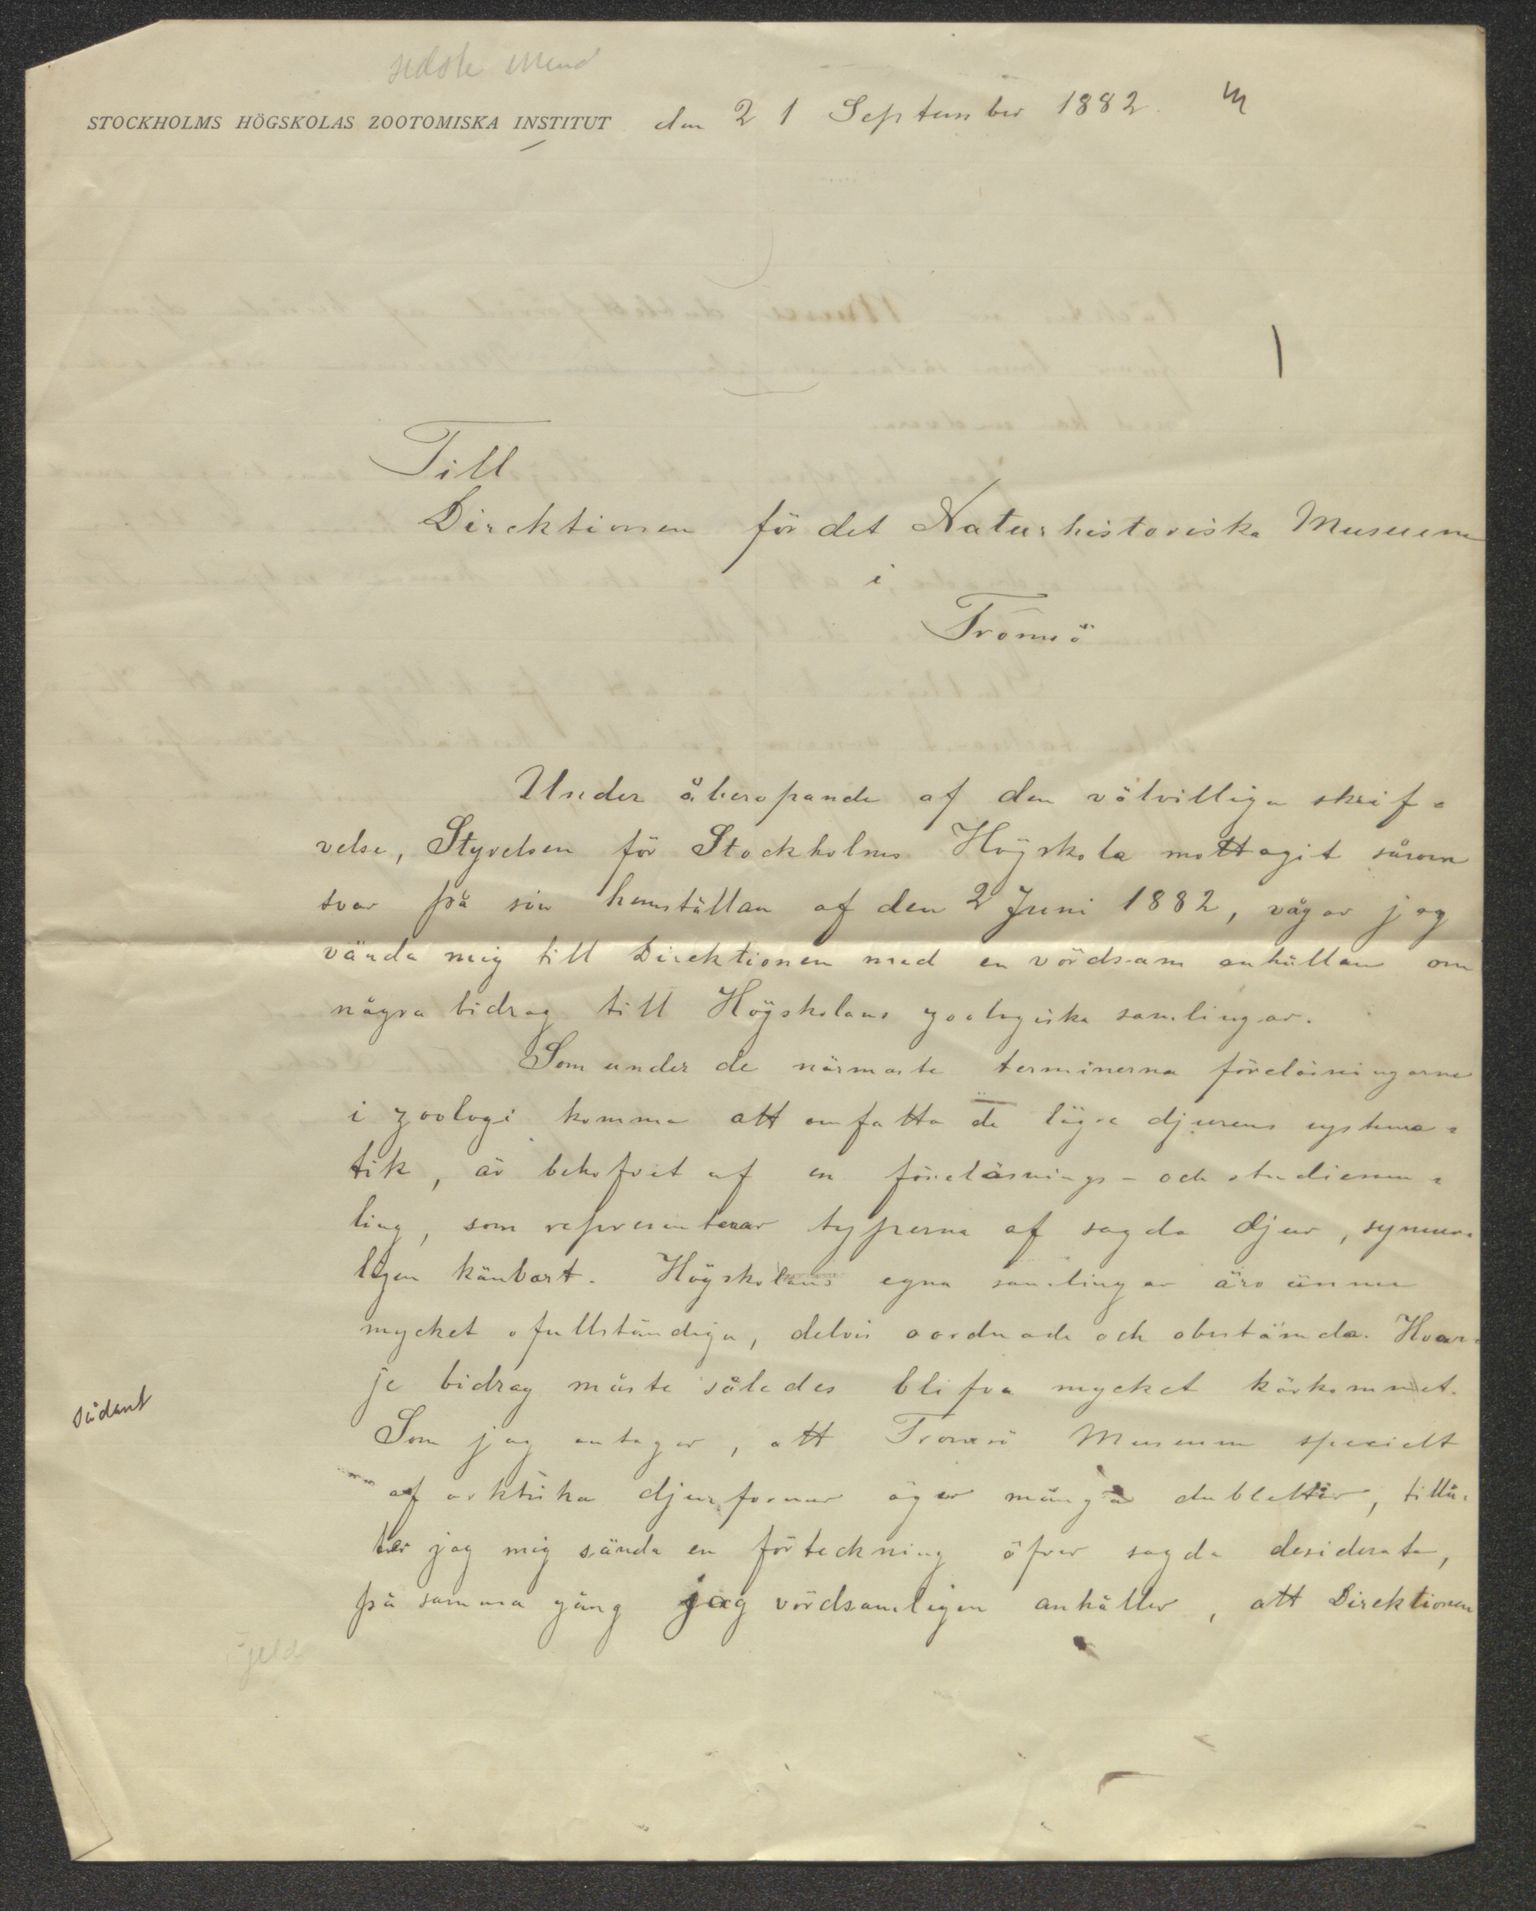 STOCKHOLMS HÖGSKOLAS ZOOTOMISKA INSTITUT den 21 September 1882.
Till
Direktionen för det Naturhistoriska Museum
i
Tromsö
Under åberopande af den välvilliga skrif-
velse, Styrelsen för Stockholms Högskola mottagit såsom
svar på sin hemställan af den 2 Juni 1882, vågar jag
vända mig till Direktionen med en vördsam anhållan om
några bidrag till Högskolans zoologiska samlingar.
Som under de närmaste terminerna föreläsningarne
i zoologi komma att omfatta de lägre djurens systema-
tik, är behofvet af en föreläsnings- och studiesam-
ling, som representerar typerna af sagda djur, synner-
ligen känbart. Högskolans egna samlingar äro ännu
mycket ofullständiga, delvis oordnade och obestämda. Hvar-
je bidrag måste således blifva mycket kärkommet.
Som jag antager, att Tromsö Museum specielt
af arktiska djurformer äger många dubletter, tillå-
ter jag mig sända en förteckning öfver sagda desiderata,
på samma gång jag vördsamligen anhåller, att Direktionen
sådant